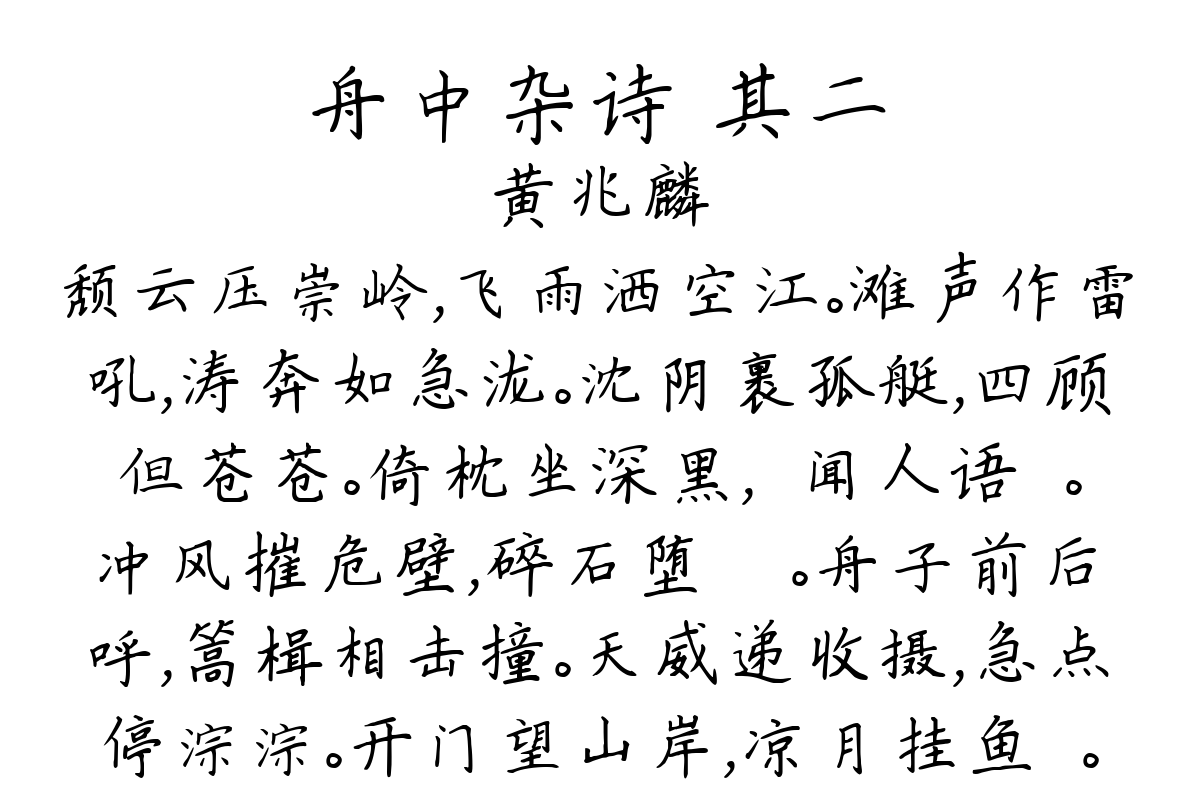 舟中杂诗 其二
黄兆麟
颓云压崇岭,飞雨洒空江。滩声作雷
吼,涛奔如急泷。沈阴裹孤艇,四顾
但苍苍。倚枕坐深黑, 闻人语 。
冲风摧危壁,碎石堕 。舟子前后
呼,篙楫相击撞。天威递收摄,急点
停淙淙。开门望山岸,凉月挂鱼 。